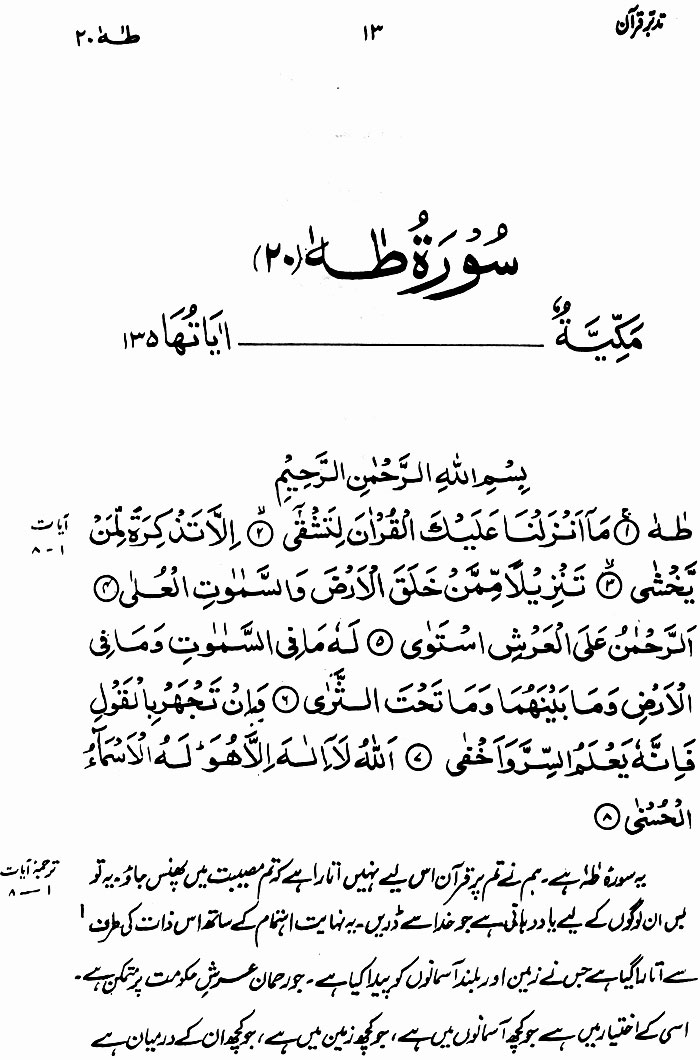 تدبر قرآن ۱۳ طٰہٰ ۲۰
سُوْرَةُ طٰهٰ (۲۰)
مَكِّيَّةٌ اٰيَاتُهَا ۱۳۵
بِسْمِ اللهِ الرَّحْمٰنِ الرَّحِيْمِ
طٰهٰ ۱ مَآ اَنْزَلْنَا عَلَيْكَ الْقُرْاٰنَ لِتَشْقٰٓى ۲ اِلَّا تَذْكِرَةً لِّمَنْ
آیات ۱-۸
يَّخْشٰى ۳ تَنْزِيْلًا مِّمَّنْ خَلَقَ الْاَرْضَ وَالسَّمٰوٰتِ الْعُلٰى ۴
اَلرَّحْمٰنُ عَلَى الْعَرْشِ اسْتَوٰى ۵ لَهٗ مَا فِى السَّمٰوٰتِ وَمَا فِى
الْاَرْضِ وَمَا بَيْنَهُمَا وَمَا تَحْتَ الثَّرٰى ۶ وَاِنْ تَجْهَرْ بِالْقَوْلِ
فَاِنَّهٗ يَعْلَمُ السِّرَّ وَاَخْفٰى ۷ اَللهُ لَآ اِلٰهَ اِلَّا هُوَ ؕ لَهُ الْاَسْمَآءُ
الْحُسْنٰى ۸
یہ سورۂ طٰہٰ ہے۔ ہم نے تم پر قرآن اس لیے نہیں اتارا ہے کہ تم مصیبت میں پھنس جاؤ۔ یہ تو
ترجمۂ آیات ۱-۸
بس ان لوگوں کے لیے یاددہانی ہے جو خدا سے ڈریں۔ یہ نہایت اہتمام کے ساتھ اس ذات کی طرف
سے اتارا گیا ہے جس نے زمین اور بلند آسمانوں کو پیدا کیا ہے۔ جو رحمان عرشِ حکومت پر متمکن ہے۔
اسی کے اختیار میں ہے جو کچھ آسمانوں میں ہے، جو کچھ زمین میں ہے، جو کچھ ان کے درمیان ہے